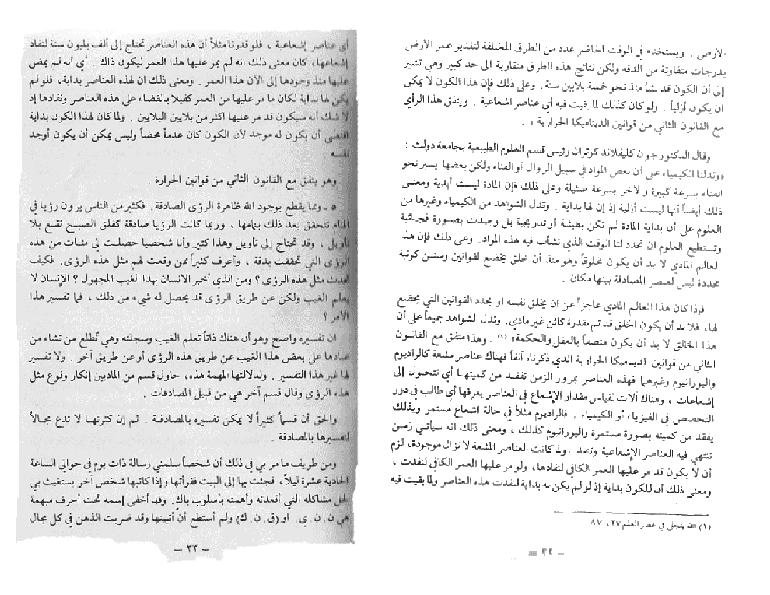 الأرض . ويستخدم في الوقت الحاضر عدد من الطرق المختلفة لتقدير عمر الأرض
بدرجات متفاوتة من الدقة ولكن نتائج هذه الطرق متقاربة الى حد كبير وهي تشير
إلى أن الكون قد نشأ منذ نحو خمسة بلايين سنة . وعلى ذلك فإن هذا الكون لا يمكن
أن يكون أزلياً . ولو كان كذلك لما بقيت فيه أي عناصر إشعاعية . ويتفق هذا الرأي
مع القانون الثاني من قوانين الديناميكا الحرارية » .
وقال الدكتور جون كليفلاند كوثران رئيس قسم العلوم الطبيعية بجامعة دولث :
« وتدلنا الكيمياء على أن بعض المواد في سبيل الزوال أو الفناء ولكن بعضها يسير نحو
الفناء بسرعة كبيرة والآخر بسرعة ضئيلة وعلى ذلك فإن المادة ليست أبدية ومعنى
ذلك أيضاً أنها ليست أزلية إذ إن لها بداية . وتدل الشواهد من الكيمياء وغيرها من
العلوم على أن بداية المادة لم تكن بطيئة أو تدريجية بل وجدت بصورة فجائية
وتستطيع العلوم ان تحدد لنا الوقت الذي نشأت فيه هذه المواد . وعلى ذلك فإن هذا
العالم المادي لا بد أن يكون مخلوقاً وهو منذ أن خلق يخضع لقوانين وسنن كونية
محددة ليس لعنصر المصادفة بينها مكان .
فإذا كان هذا العالم المادي عاجزاً عن ان يخلق نفسه أو يحدد القوانين التي يخضع
لها ، فلا بد أن يكون الخلق قد تم بقدرة كائن غير مادي . وتدل الشواهد جميعاً على أن
هذا الخالق لا بد أن يكون متصفاً بالعقل والحكمة » (١) . وهذا متفق مع القانون
الثاني من قوانين الديناميكا الحرارية الذي ذكرناه آنفاً فهناك عناصر مشعة كالراديوم
واليورانيوم وغيرهما فهذه العناصر بمرور الزمن تفقد من كميتها أي تتحول إلى
إشعاعات ، وهناك آلات لقياس مقدار الإشعاع في العناصر يعرفها أي طالب في دور
التخصص في الفيزياء أو الكيمياء . فالراديوم مثلاً في حالة إشعاع مستمر وبذلك
يفقد من كميته بصورة مستمرة واليورانيوم كذلك ، ومعنى ذلك انه سيأتي زمن
تنتهي فيه العناصر الإشعاعية وتنفد . ولما كانت العناصر المشعة لا تزال موجودة ، لزم
أن لا يكون قد مر عليها العمر الكافي لنفادها ، ولو مر عليها العمر الكافي لنفدت ،
ومعنى ذلك أن للكون بداية إذ لو لم يكن له بداية لنفدت هذه العناصر ولما بقيت فيه
(١) الله يتجلى في عصر العلم ٢٧ ، ٨٧
— ٣٢ —
أي عناصر إشعاعية ، فلو قدرنا مثلاً أن هذه العناصر تحتاج إلى ألف بليون سنة لنفاد
إشعاعها ، كان معنى ذلك انه لم يمر عليها هذا العمر ليكون ذاك . أي انه لم يمض
عليها منذ وجودها إلى الآن هذا العمر . ومعنى ذلك ان لهذه العناصر بداية ، فلو لم
يكن لها بداية لكان ما مر عليها من العمر كفيلاً بالقضاء على هذه العناصر ونفادها إذ
لا شك انه سيكون قد مر عليها أكثر من بلايين البلايين . ولما كان لهذا الكون بداية
اقتضى أن يكون له موجد لأن الكون كان عدماً محضاً وليس يمكن أن يكون أوجد
نفسه
وهو يتفق مع القانون الثاني من قوانين الحرارة
٥ ـ ومما يقطع بوجود الله ظاهرة الرؤى الصادقة . فكثير من الناس يرون رؤيا في
المنام تتحقق بعد ذلك بتمامها ، وربما كانت الرؤيا صادقة كفلق الصبح تقع بلا
تأويل ، وقد تحتاج إلى تأويل وهذا كثير وأنا شخصياً حصلت لي مئات من هذه
الرؤى التي تحققت بدقة ، وأعرف كثيراً ممن وقعت لهم مثل هذه الرؤى . فكيف
تحدث مثل هذه الرؤى ؟ ومن الذي أخبر الانسان بهذا الغيب المجهول ؟ الانسان لا
يعلم الغيب ولكن عن طريق الرؤى قد يحصل له شيء من ذلك ، فما تفسير هذا
الأمر ؟
ان تفسيره واضح وهو أن هناك ذاتاً تعلم الغيب وسجلته وهي تُطلع من تشاء من
عبادها على بعض هذا الغيب عن طريق هذه الرؤى أو عن طريق آخر . ولا تفسير
لها غير هذا التفسير . ولدلالتها المهمة هذه ، حاول قسم من الماديين إنكار وقوع مثل
هذه الرؤى وقال قسم آخر هي من قبيل المصادفات .
والحق أن قسماً كثيراً لا يمكن تفسيره بالمصادفة . ثم إن كثرتها لا تدع مجالاً
لتفسيرها بالمصادفة .
ومن طريف ما مر بي في ذلك أن شخصاً سلمني رسالة ذات يوم في حوالي الساعة
الحادية عشرة ليلاً ، فجئت بها إلى البيت فقرأتها وإذا كاتبها شخص آخر يستفيث بي
لحل مشاكله التي أقعدته وأهمته بأسلوب باك . وقد أخفى إسمه تحت أحرف مبهمة
هي ن . ن . ي . او ( ق . ن . ك ) ولم أستطع أن أتبينها وقد ضربت الذهن في كل مجال
— ٣٣ —